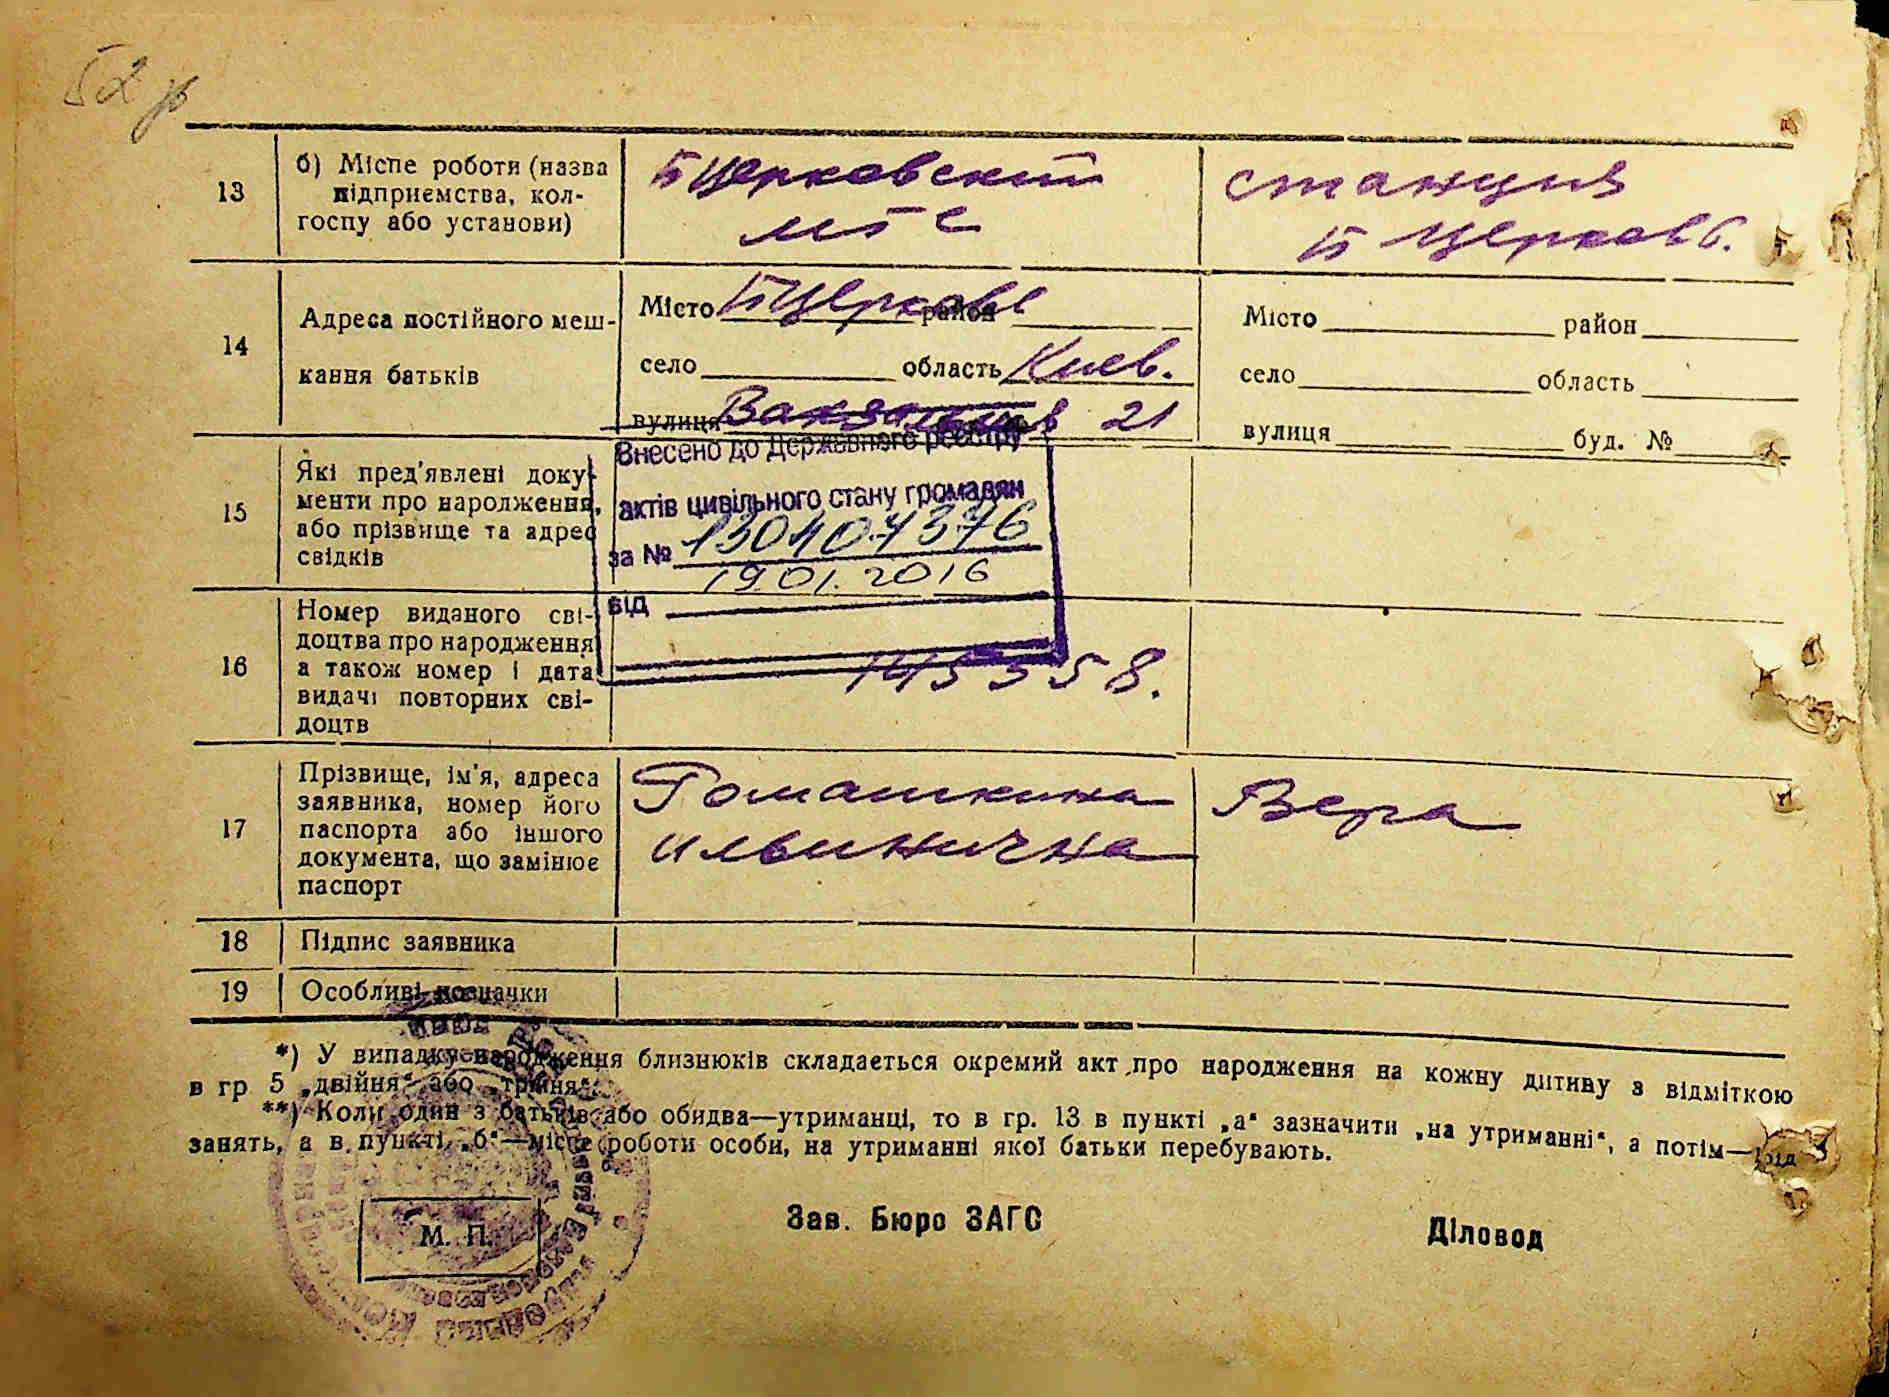 52
13
б) Місце роботи (назва
підприємства, кол-
госпу або установи)
Б Церковский
МТС
станция
Б Церковь.
14
Адреса постійного меш-
кання батьків
Місто Б Церковь район
село область Киев.
вулиця Вакзальная 21
Місто район
село область
вулиця буд. №
15
Які пред'явлені доку-
менти про народження,
або прізвище та адрес
свідків
Внесено до Державного реєстру
актів цивільного стану громадян
за № 130407376
19.01.2016
від
16
Номер виданого сві-
доцтва про народження
а також номер і дата
видачі повторних сві-
доцтв
145558.
17
Прізвище, ім'я, адреса
заявника, номер його
паспорта або іншого
документа, що замінює
паспорт
Ромашкина Вера
Ильинична
18 Підпис заявника
19 Особливі позначки
*) У випадку народження близнюків складається окремий акт про народження на кожну дитину з відміткою
в гр 5 „двійня“ або „трійня“.
**) Коли один з батьків або обидва—утриманці, то в гр. 13 в пункті „а“ зазначити „на утриманні“, а потім—рід
занять, а в пункті „б“—місце роботи особи, на утриманні якої батьки перебувають.
М. П.
Зав. Бюро ЗАГС
Діловод